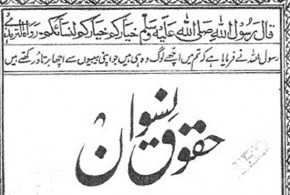 قال رسول اللہ صلی اللہ علیہ وسلم خیارکم خیارکم لنسائکم رواہ الترمذی
رسول اللہ نے فرمایا ہے کہ تم میں اچھے لوگ وہ ہی ہیں جو اپنی بیبیوں سے اچھا برتاؤ رکھتے ہیں
حقوق نسواں